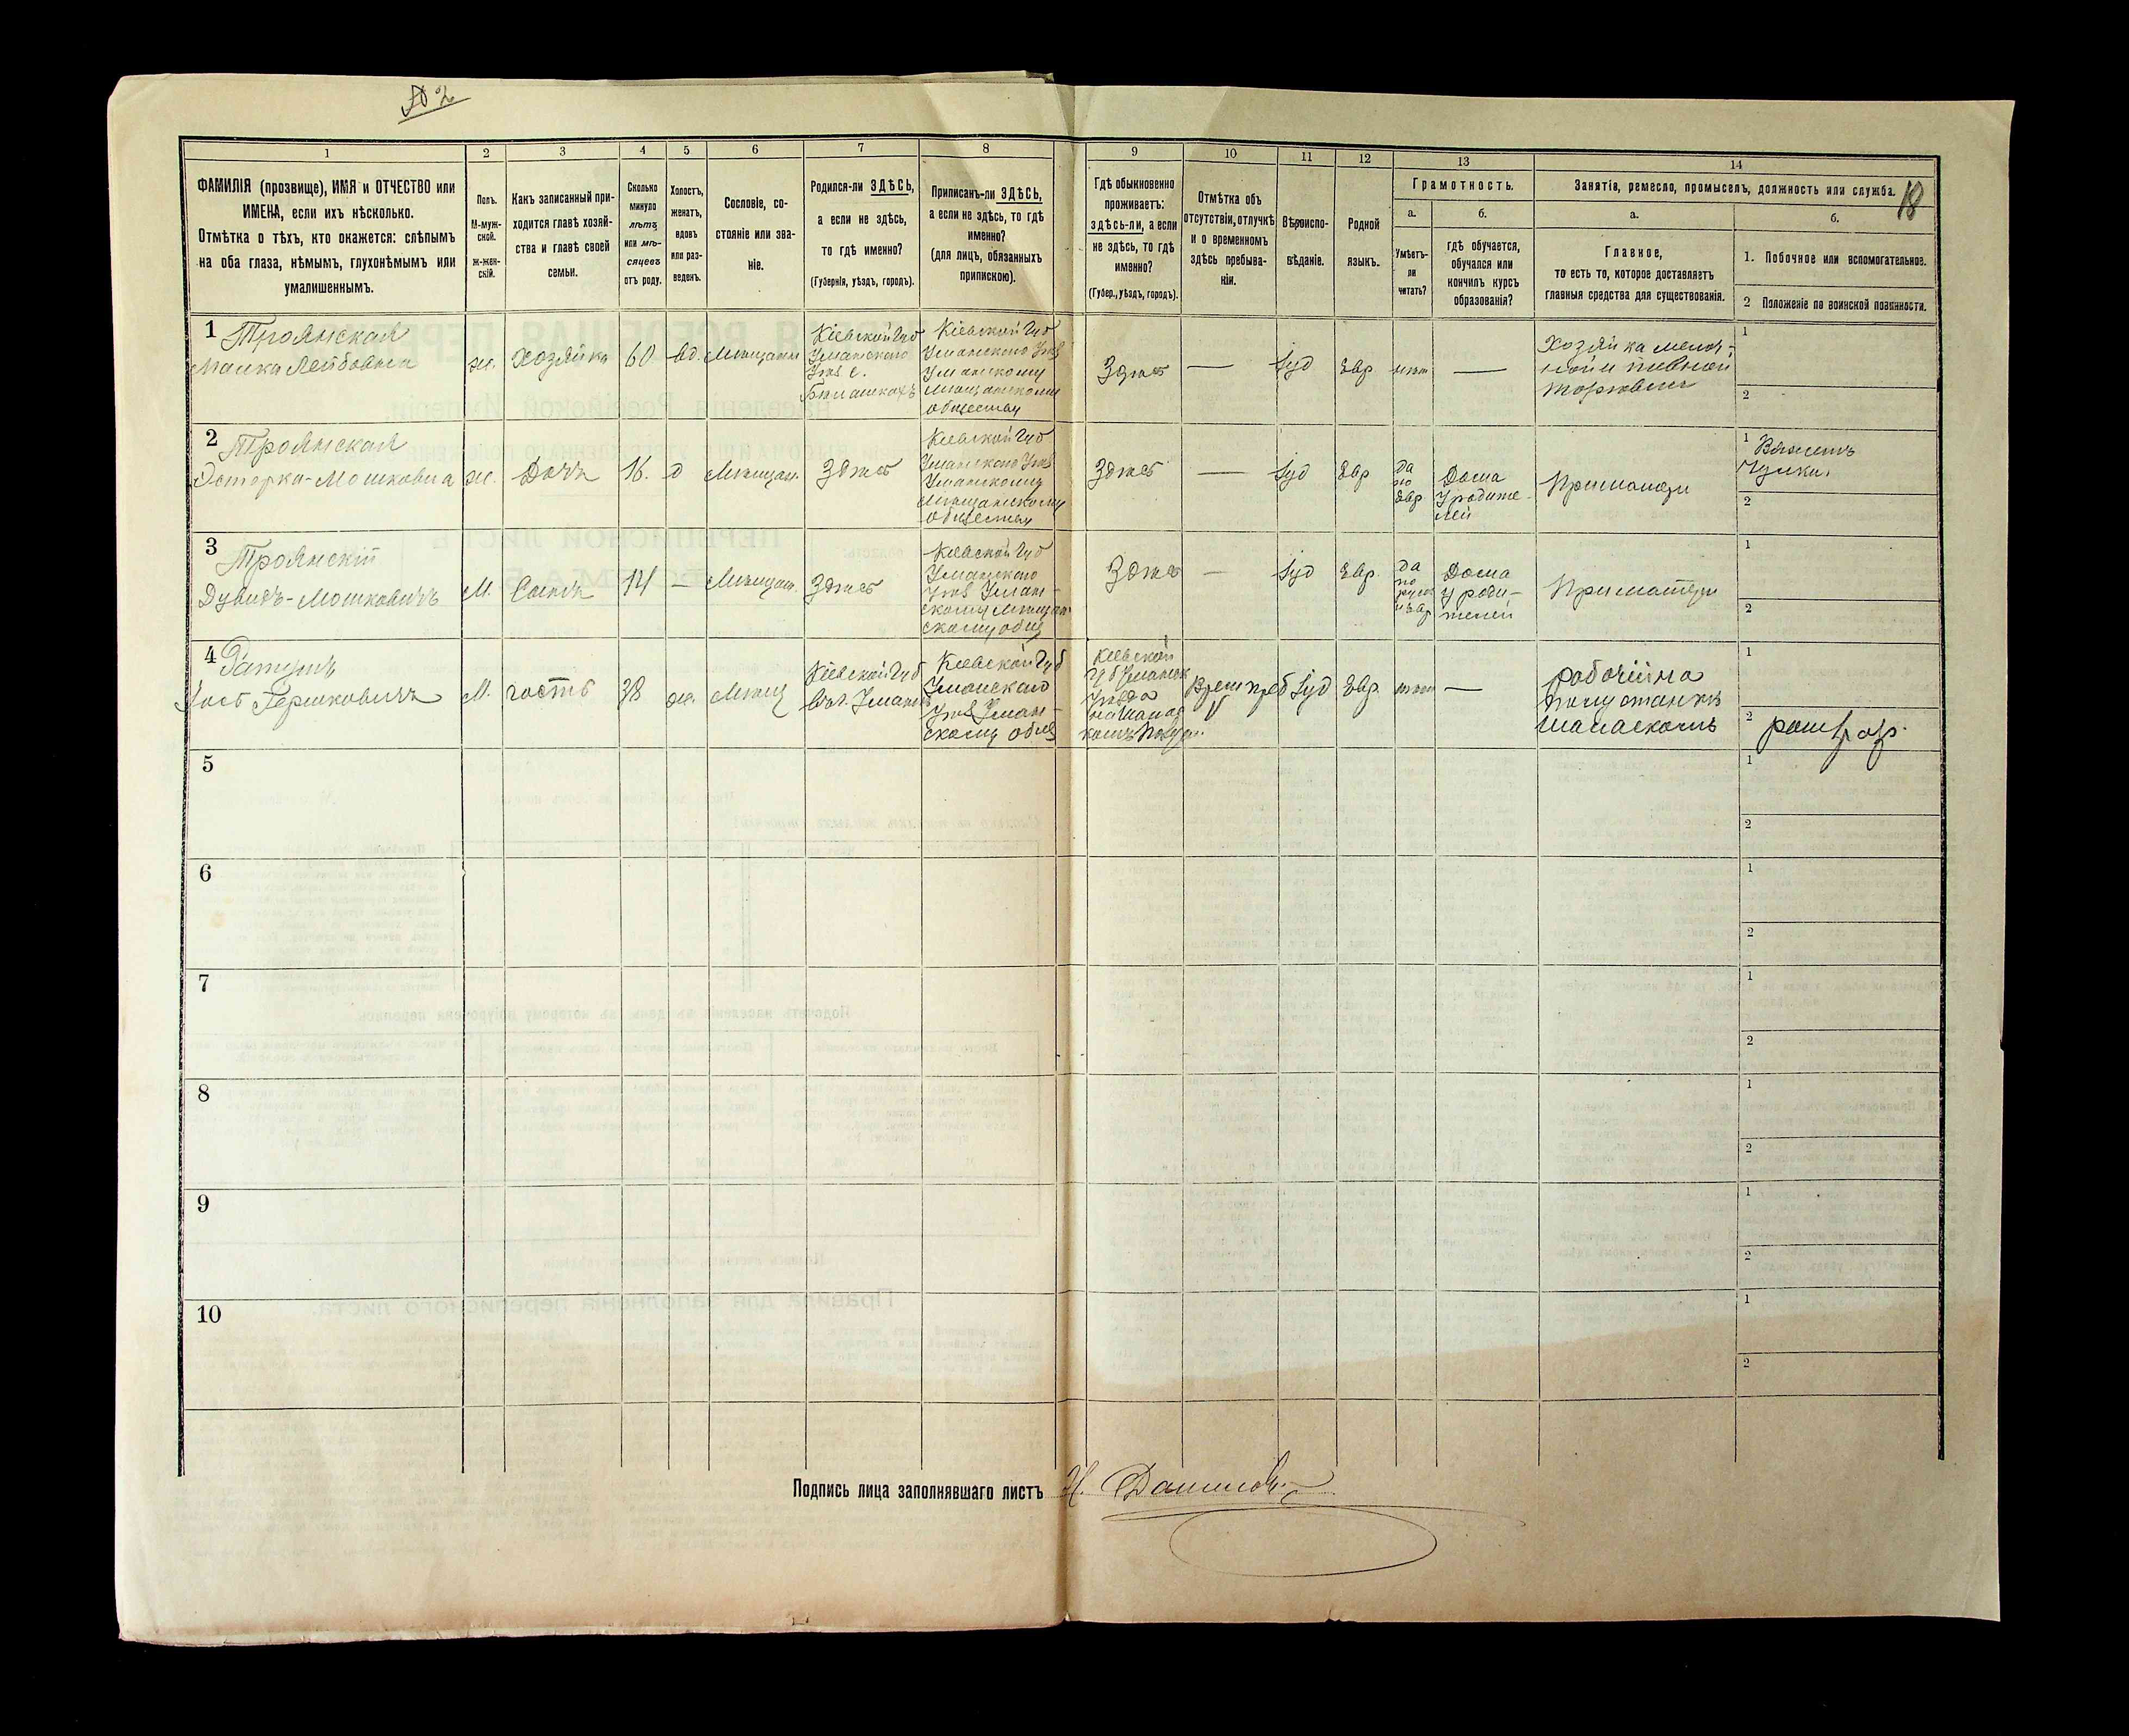 № 2
18
1 2 3 4 5 6 7 8 9 10 11 12 13 14
ФАМИЛІЯ (прозвище), ИМЯ и ОТЧЕСТВО или
ИМЕНА, если ихъ нѣсколько.
Отмѣтка о тѣхъ, кто окажется: слѣпымъ
на оба глаза, нѣмымъ, глухонѣмымъ или
умалишеннымъ.
Полъ.
М-муж-
ской.
Ж-жен-
скій.
Какъ записанный при-
ходится главѣ хозяй-
ства и главѣ своей
семьи.
Сколько
минуло
лѣтъ
или мѣ-
сяцевъ
отъ роду.
Холостъ,
женатъ,
вдовъ
или раз-
веденъ.
Сословіе, со-
стояніе или зва-
ніе.
Родился-ли ЗДѢСЬ,
а если не здѣсь,
то гдѣ именно?
(Губернія, уѣздъ, городъ).
Приписанъ-ли ЗДѢСЬ,
а если не здѣсь, то гдѣ
именно?
(для лицъ, обязанныхъ
припискою).
Гдѣ обыкновенно
проживаетъ:
здѣсь-ли, а если
не здѣсь, то гдѣ
именно?
(Губер., уѣздъ, городъ).
Отмѣтка объ
отсутствіи, отлучкѣ
и о временномъ
здѣсь пребыва-
ніи.
Вѣроиспо-
вѣданіе.
Родной
языкъ.
Грамотность.
а.
Умѣетъ-
ли
читать?
б.
гдѣ обучается,
обучался или
кончилъ курсъ
образованія?
Занятіе, ремесло, промыселъ, должность или служба.
а.
Главное,
то есть то, которое доставляетъ
главныя средства для существованія.
б.
1. Побочное или вспомогательное.
2 Положеніе по воинской повинности.
1 Троянская
Малка Лейбовна
ж.
Хозяйка
60
вд.
Мѣщанка
Кіевской Губ
Уманского
Уѣз с.
Кіевской Губ
Уманского Уѣз
Уманскому
Мѣщанскому
обществу
Здѣсь
—
Іуд
Евр
нѣт
—
Хозяйка мелоч-
ной и пивной
торговли
1
2
2 Троянская
Эстерка-Мошковна
ж.
Дочь
16.
д
Мѣщан.
Здѣсь
Кіевской Губ
Уманского Уѣз
Уманскому
Мѣщанскому
обществу
Здѣсь
—
Іуд
Евр
да
по
Евр
Дома
у родите-
лей
При матери
1 Вяжетъ
Чулки.
2
3 Троянскій
Дувидъ-Мошковичъ
М.
Сынъ
14
—
Мѣщан.
Здѣсь
Кіевской Губ
Уманского
Уѣз Уман-
скому Мѣщан
скому общ
Здѣсь
—
Іуд
Евр.
да
по
русс
и Евр
Дома
у роди-
телей
При матери
1
2
4
Гершковичъ
М.
гость
38
ж.
Мѣщ
Кіевской Губ
Кіевской Губ
Уманского
Уѣз Уман-
скому общ
Кіевской
Губ Уманск
Уѣзда
Врем преб
Іуд
Евр.
нѣт
—
рабочій на
1
2
5
1
2
6
1
2
7
1
2
8
1
2
9
1
2
10
1
2
Подпись лица заполнявшаго листъ